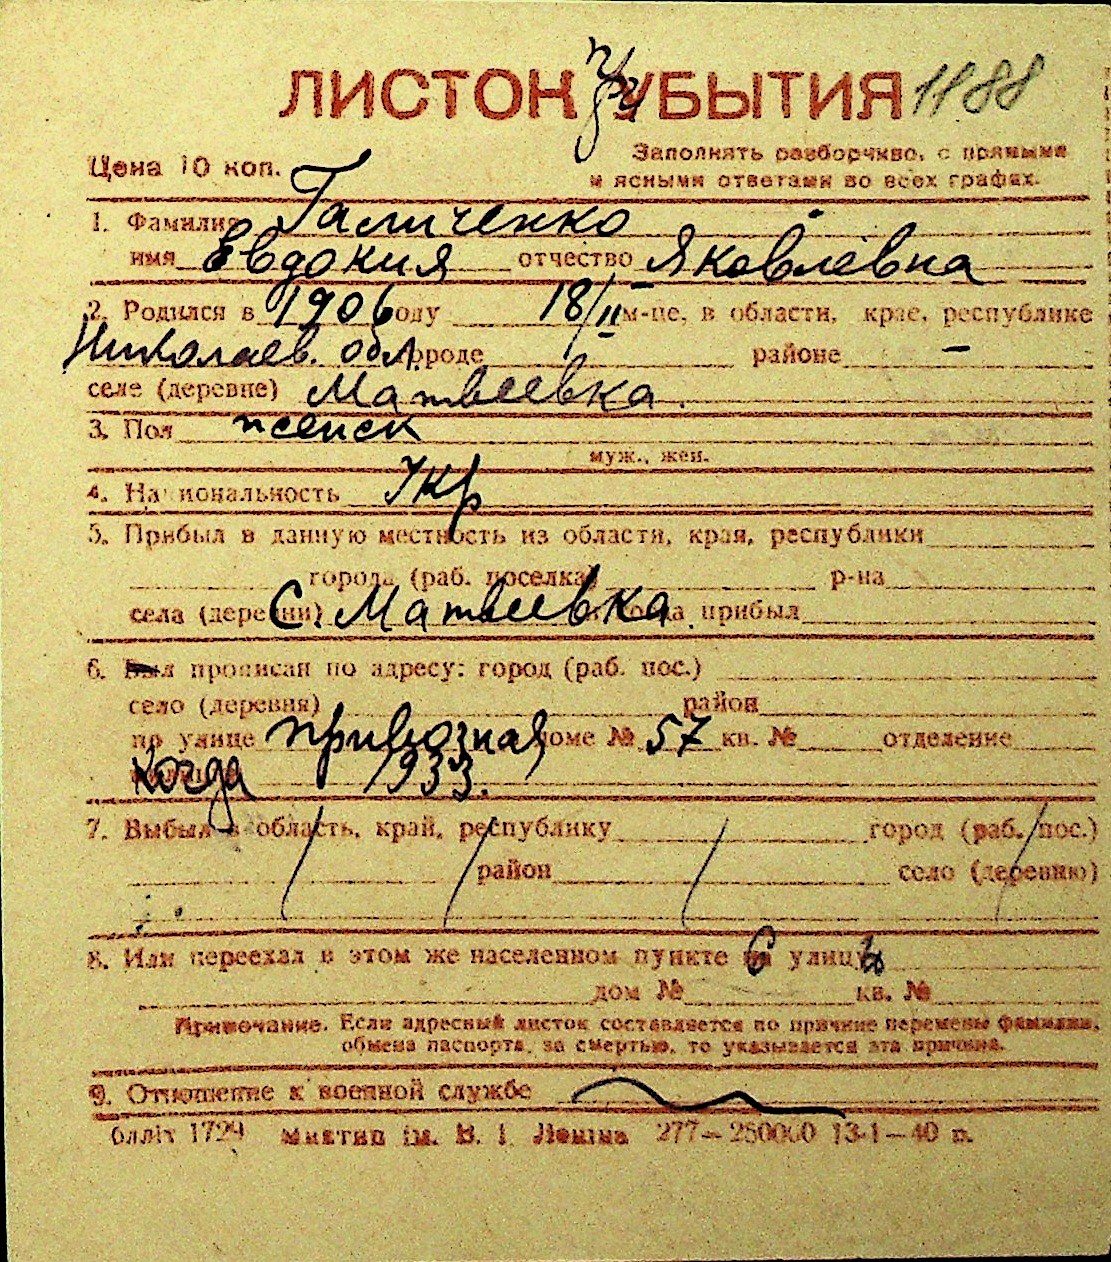 ЛИСТОК УБЫТИЯ 1188
Цена 10 коп.
Заполнять разборчиво, с прямыми
и ясными ответами во всех графах.
1. Фамилия Галиченко
имя Евдокия отчество Яковлевна
2. Родился в 1906 году 18/II м-це, в области, крае, республике
Николаев. обл. городе — районе —
селе (деревне) Матвеевка.
3. Пол женск
муж., жен.
4. Национальность Укр
5. Прибыл в данную местность из области, края, республики
города (раб. поселка) р-на
села (деревни) С. Матвеевка прибыл
6. Был прописан по адресу: город (раб. пос.)
село (деревня) район
по улице Привозная доме № 57 кв. № отделение
Когда 1933.
7. Выбыл в область, край, республику город (раб. пос.)
район село (деревню)
8. Или переехал в этом же населенном пункте с улицы
дом № кв. №
Примечание. Если адресный листок составляется по причине перемены фамилии,
обмена паспорта, за смертью, то указывается эта причина.
9. Отношение к военной службе
блліт 1729 Миктип ім. В. І. Леніна 277—250000 13-1—40 п.